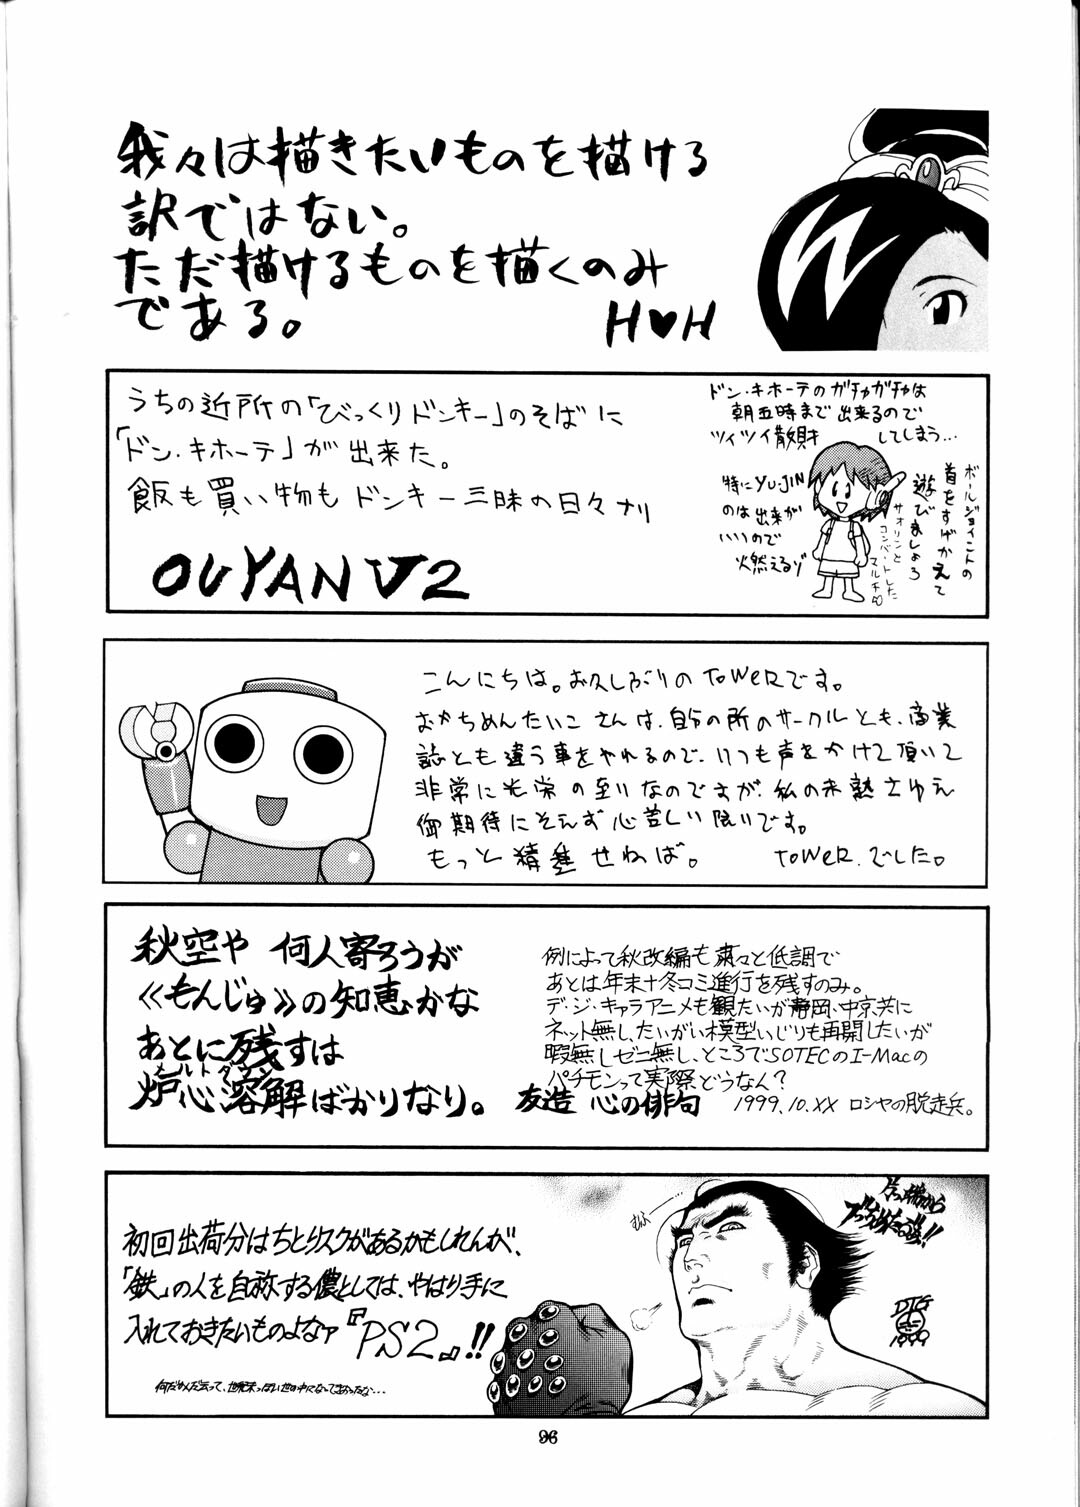 我々は描きたいものを描ける
訳ではない。
ただ描けるものを描くのみ
である。
H♥H
うちの近所の「びっくりドンキー」のそばに
「ドン・キホーテ」が出来た。
飯も買い物もドンキー三昧の日々ナリ
OUYAN V2
ドン・キホーテのガチャガチャは
朝五時まで出来るので
ツイツイ散財してしまう…
特にYUJIN
のは出来が
いいので
火燃えるゾ
ボールジョイントの
首をすげかえて
遊びましょう
サオリンと
コンパートした
マルチ
こんにちは。お久しぶりのToWeRです。
おかちめんたいこさんは、自分の所のサークルとも、商業
誌とも違う事をやれるので、いつも声をかけて頂いて
非常に光栄の至りなのですが、私の未熟さゆえ
御期待にそえず心苦しい限りです。
もっと精進せねば。
ToWeR.でした。
秋空や 何人寄ろうが
≪もんじゅ≫の知恵かな
あとに残すは
炉心溶解ばかりなり。
メルトダウン
友造 心の俳句
例によって秋改編も粛々と低調で
あとは年末+冬コミ進行を残すのみ。
デ・ジ・キャラアニメも観たいが静岡、中京共に
ネット無し、たいがい模型いじりも再開したいが
暇無しゼニ無し、ところでSOTECのI-Macの
パチモンって実際どうなん?
1999.10.XX ロシヤの脱走兵。
初回出荷分はちとリスクがあるかもしれんが、
「鉄」の人を自称する儂としては、やはり手に
入れておきたいものよなァ『PS2』!!
むふぅ
片っ端から
DTG
1999
96